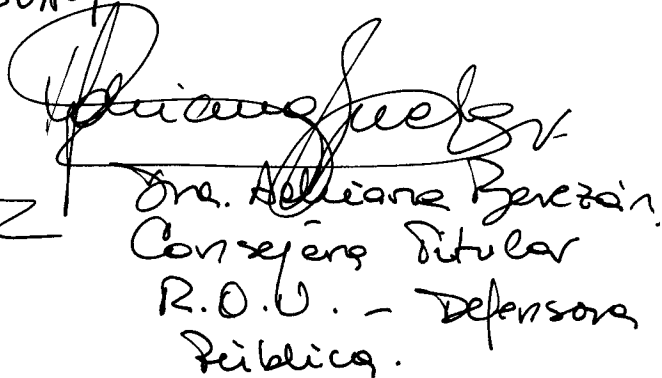 Dra. Adriana Berezán,
Consejera Titular
R.O.U. - Defensora
Pública.